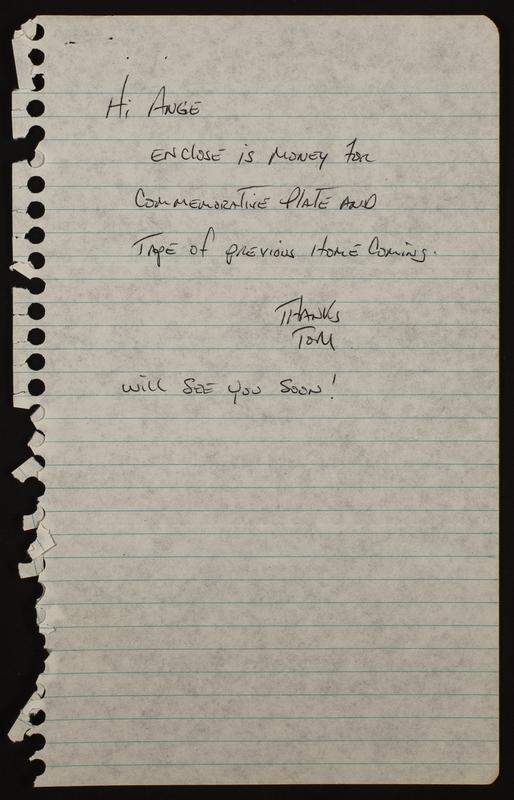 Hi ANGE
ENCLOSE iS MONEY FOR
COMMEMORATIVE PlATE AND
TAPE of previous HOME COMING.
THANKS
TOM
will SEE you SOON!